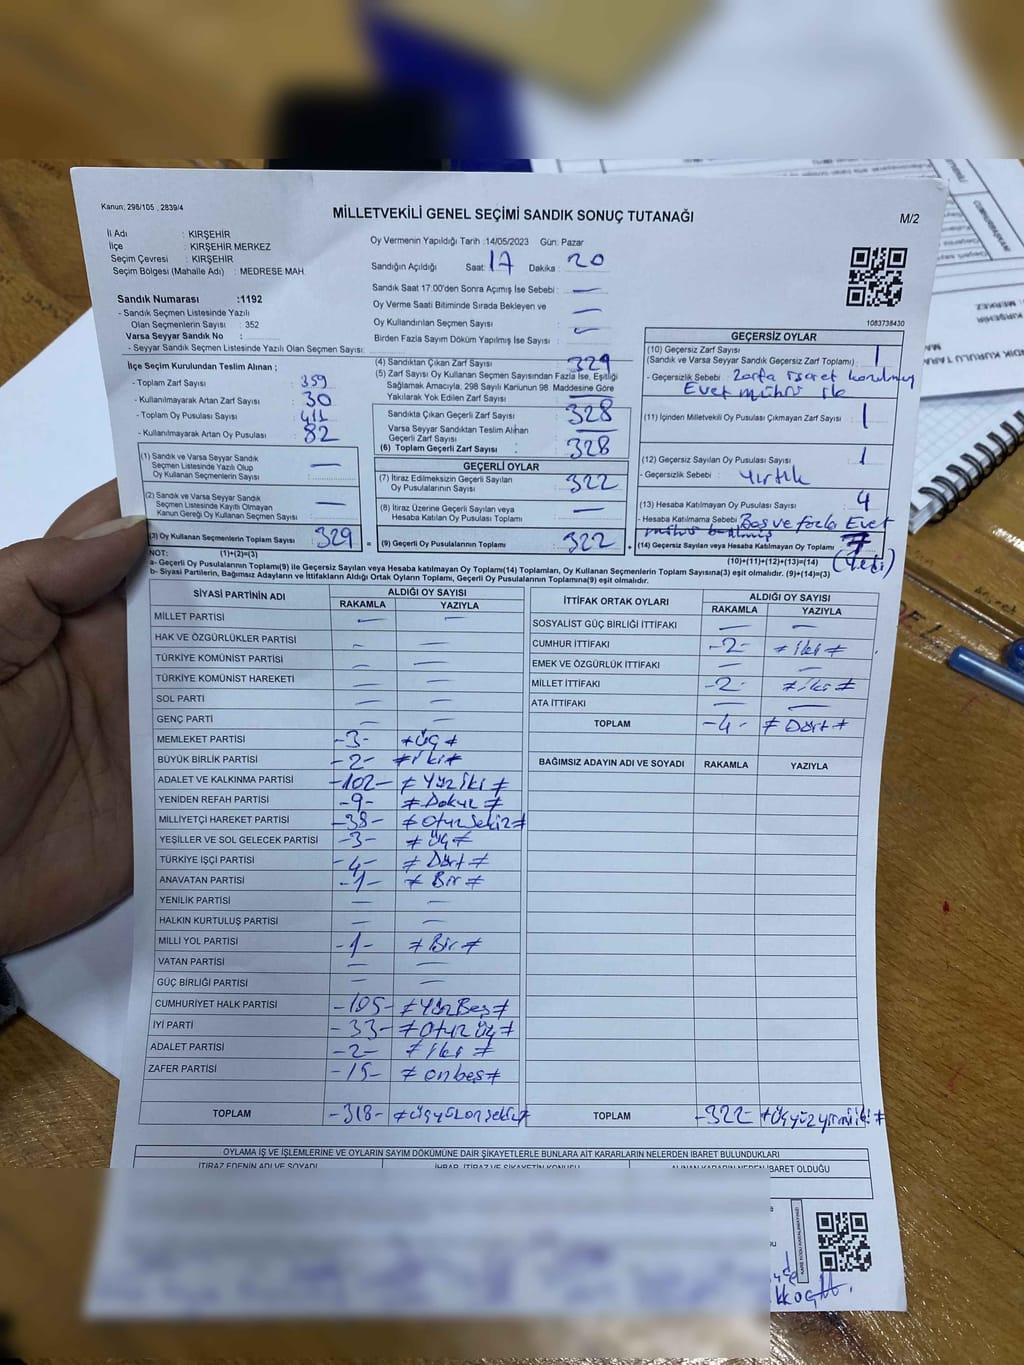 Kanun; 298/105 , 2839/4
MİLLETVEKİLİ GENEL SEÇİMİ SANDIK SONUÇ TUTANAĞI
M/2
İl Adı : KIRŞEHİR
İlçe : KIRŞEHİR MERKEZ
Seçim Çevresi : KIRŞEHİR
Seçim Bölgesi (Mahalle Adı) : MEDRESE MAH.
Oy Vermenin Yapıldığı Tarih :14/05/2023 Gün: Pazar
Sandığın Açıldığı Saat: 17 Dakika : 20
Sandık Saat 17:00'den Sonra Açımış İse Sebebi : —
Oy Verme Saati Bitiminde Sırada Bekleyen ve
Oy Kullandırılan Seçmen Sayısı : —
Birden Fazla Sayım Döküm Yapılmış İse Sayısı :
1083738430
Sandık Numarası :1192
- Sandık Seçmen Listesinde Yazılı
Olan Seçmenlerin Sayısı : 352
Varsa Seyyar Sandık No :
- Seyyar Sandık Seçmen Listesinde Yazılı Olan Seçmen Sayısı:
İlçe Seçim Kurulundan Teslim Alınan ;
- Toplam Zarf Sayısı : 359
- Kullanılmayarak Artan Zarf Sayısı : 30
- Toplam Oy Pusulası Sayısı : 411
- Kullanılmayarak Artan Oy Pusulası : 82
(1) Sandık ve Varsa Seyyar Sandık
Seçmen Listesinde Yazılı Olup
Oy Kullanan Seçmenlerin Sayısı : —
(2) Sandık ve Varsa Seyyar Sandık
Seçmen Listesinde Kayıtlı Olmayan
Kanun Gereği Oy Kullanan Seçmen Sayısı : —
(3) Oy Kullanan Seçmenlerin Toplam Sayısı : 329
(4) Sandıktan Çıkan Zarf Sayısı : 329
(5) Zarf Sayısı Oy Kullanan Seçmen Sayısından Fazla İse, Eşitliği
Sağlamak Amacıyla, 298 Sayılı Kanunun 98. Maddesine Göre
Yakılarak Yok Edilen Zarf Sayısı :
Sandıkta Çıkan Geçerli Zarf Sayısı : 328
Varsa Seyyar Sandıktan Teslim Alınan
Geçerli Zarf Sayısı : —
(6) Toplam Geçerli Zarf Sayısı : 328
GEÇERLİ OYLAR
(7) İtiraz Edilmeksizin Geçerli Sayılan
Oy Pusulalarının Sayısı : 322
(8) İtiraz Üzerine Geçerli Sayılan veya
Hesaba Katılan Oy Pusulası Toplamı : —
= (9) Geçerli Oy Pusulalarının Toplamı : 322
GEÇERSİZ OYLAR
(10) Geçersiz Zarf Sayısı
(Sandık ve Varsa Seyyar Sandık Geçersiz Zarf Toplamı) : 1
- Geçersizlik Sebebi : Zarfa işaret konulmuş
Evet mührü ile
(11) İçinden Milletvekili Oy Pusulası Çıkmayan Zarf Sayısı : 1
(12) Geçersiz Sayılan Oy Pusulası Sayısı : 1
- Geçersizlik Sebebi : Yırtık
(13) Hesaba Katılmayan Oy Pusulası Sayısı : 4
- Hesaba Katılmama Sebebi : Boş ve fazla Evet
mührü basılmış
(14) Geçersiz Sayılan veya Hesaba Katılmayan Oy Toplamı : 7
(Yedi)
NOT: (1)+(2)=(3) (10)+(11)+(12)+(13)=(14)
a- Geçerli Oy Pusulasının Toplamı(9) ile Geçersiz Sayılan veya Hesaba katılmayan Oy Toplamı(14) Toplamları, Oy Kullanan Seçmenlerin Toplam Sayısına(3) eşit olmalıdır. (9)+(14)=(3)
b- Siyasi Partilerin, Bağımsız Adayların ve İttifakların Aldığı Ortak Oyların Toplamı, Geçerli Oy Pusulalarının Toplamına(9) eşit olmalıdır.
SİYASİ PARTİNİN ADI ALDIĞI OY SAYISI
RAKAMLA YAZIYLA
MİLLET PARTİSİ — —
HAK VE ÖZGÜRLÜKLER PARTİSİ — —
TÜRKİYE KOMÜNİST PARTİSİ — —
TÜRKİYE KOMÜNİST HAREKETİ — —
SOL PARTİ — —
GENÇ PARTİ — —
MEMLEKET PARTİSİ -3- ≠ Üç ≠
BÜYÜK BİRLİK PARTİSİ -2- ≠ iki ≠
ADALET VE KALKINMA PARTİSİ -102- ≠ Yüz iki ≠
YENİDEN REFAH PARTİSİ -9- ≠ Dokuz ≠
MİLLİYETÇİ HAREKET PARTİSİ -38- ≠ Otuz sekiz ≠
YEŞİLLER VE SOL GELECEK PARTİSİ -3- ≠ üç ≠
TÜRKİYE İŞÇİ PARTİSİ -4- ≠ Dört ≠
ANAVATAN PARTİSİ -1- ≠ Bir ≠
YENİLİK PARTİSİ — —
HALKIN KURTULUŞ PARTİSİ — —
MİLLİ YOL PARTİSİ -1- ≠ Bir ≠
VATAN PARTİSİ — —
GÜÇ BİRLİĞİ PARTİSİ — —
CUMHURİYET HALK PARTİSİ -105- ≠ Yüz Beş ≠
İYİ PARTİ -33- ≠ Otuz üç ≠
ADALET PARTİSİ -2- ≠ iki ≠
ZAFER PARTİSİ -15- ≠ onbeş ≠
TOPLAM -318- ≠ üçyüzonsekiz ≠
İTTİFAK ORTAK OYLARI ALDIĞI OY SAYISI
RAKAMLA YAZIYLA
SOSYALİST GÜÇ BİRLİĞİ İTTİFAKI — —
CUMHUR İTTİFAKI -2- ≠ iki ≠
EMEK VE ÖZGÜRLÜK İTTİFAKI — —
MİLLET İTTİFAKI -2- ≠ iki ≠
ATA İTTİFAKI — —
TOPLAM -4- ≠ Dört ≠
BAĞIMSIZ ADAYIN ADI VE SOYADI RAKAMLA YAZIYLA
TOPLAM -322- ≠ üçyüzyirmiiki ≠
OYLAMA İŞ VE İŞLEMLERİNE VE OYLARIN SAYIM DÖKÜMÜNE DAİR ŞİKAYETLERLE BUNLARA AİT KARARLARIN NELERDEN İBARET BULUNDUKLARI
İTİRAZ EDENİN ADI VE SOYADI İHBAR, İTİRAZ VE ŞİKAYETİN KONUSU ALINAN KARARIN NEDEN İBARET OLDUĞU